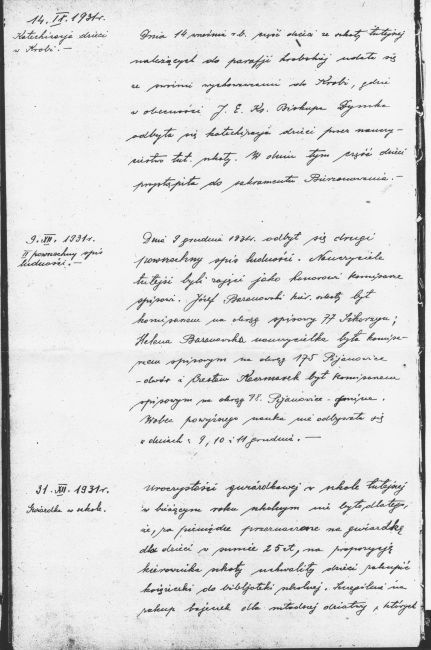 14. IX. 1931r.
Katechizacja dzieci
w Krobi. —
Dnia 14 września r.b. część dzieci ze szkoły tutejszej
należących do parafji krobskiej udała się
ze swoimi wychowawcami do Krobi, gdzie
w obecności J. E. Ks. Biskupa Dymka
odbyła się katechizacja dzieci przez nauczy-
cielstwo tut. szkoły. W dniu tym część dzieci
przystąpiła do sakramentu Bierzmowania. —
9. XII. 1931r.
II powszechny spis
ludności. —
Dnia 9 grudnia 1931r. odbył się drugi
powszechny spis ludności. Nauczyciele
tutejsi byli zajęci jako honorowi komisarze
spisowi. Józef Baranowski kier. szkoły był
komisarzem na okrąg spisowy 77 Sikorzyn;
Helena Baranowska nauczycielka była komisa-
rzem spisowym na okrąg 175 Pijanowice
- dwór i Czesław Kaczmarek był komisarzem
spisowym na okrąg Pijanowice - gmina.
Wobec powyższego nauka nie odbywała się
w dniach: 9, 10 i 11 grudnia. —
31. XII. 1931r.
Gwiazdka w szkole.
Uroczystości gwiazdkowej w szkole tutejszej
w bieżącym roku szkolnym nie było, dlatego,
że, za pieniądze przeznaczone na gwiazdkę
dla dzieci w sumie 25 zł, na propozycję
kierownika szkoły uchwaliły dzieci zakupić
książeczki do bibljoteki szkolnej.
zakup bajeczek dla młodszej dziatwy, których